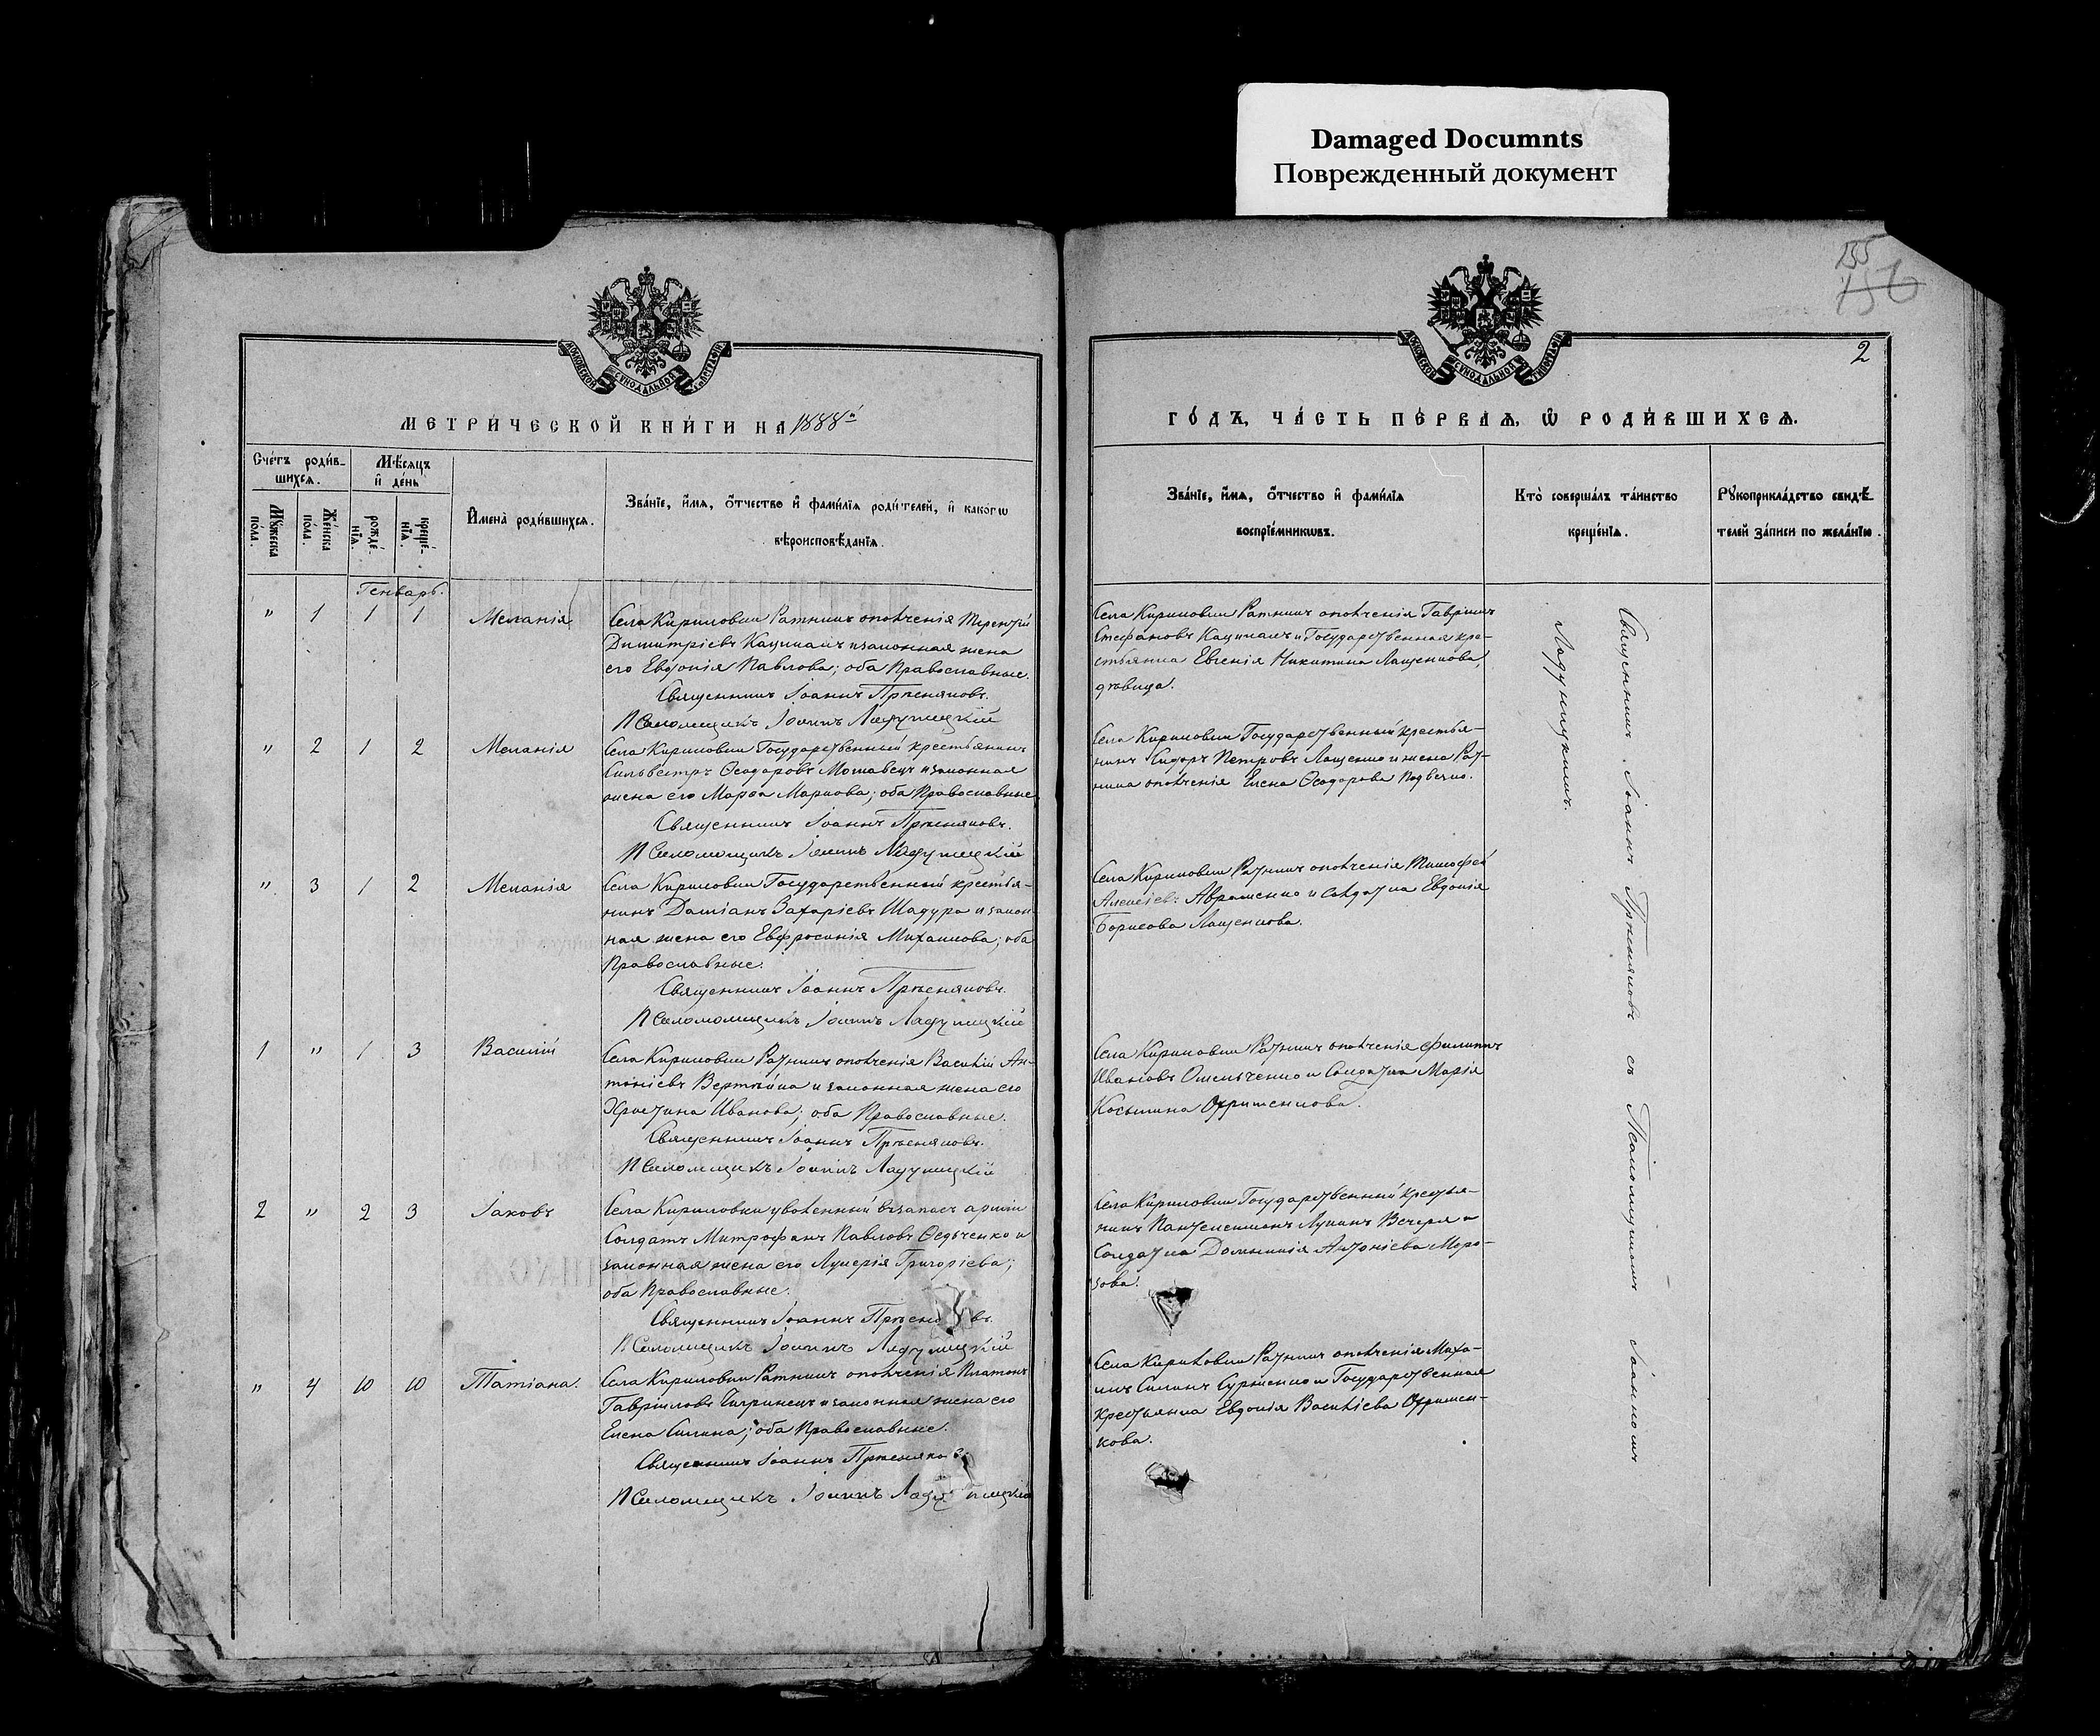 Damaged Documnts
Поврежденный документ
155
156
2
МОСКОВСКОЙ СѴНОДАЛЬНОЙ ТИПОГРАФІИ
МОСКОВСКОЙ СѴНОДАЛЬНОЙ ТИПОГРАФІИ
МЕТРИ́ЧЕСКОЙ КНИ́ГИ НА 1888й
ГО́ДЪ, ЧА́СТЬ ПЕ́РВАѦ, Ѽ РОДИ́ВШИХСѦ.
Сче́тъ роди́в-
шихсѧ.
Мꙋ́жеска по́ла.
Же́нска по́ла.
Мѣ́сѧцъ и҆ де́нь
рожде́-нїѧ.
креще́-нїѧ.
И҆мена̀ роди́вшихсѧ.
Зва́нїе, и҆́мѧ, ѻ҆́тчество и҆ фами́лїѧ роди́телей, и҆ како́гѡ
вѣроисповѣ́данїѧ.
Зва́нїе, и҆́мѧ, ѻ҆́тчество и҆ фами́лїѧ
воспрїе́мникѡвъ.
Кто̀ соверша́лъ та́инство
креще́нїѧ.
Рꙋкоприкла́дство свидѣ́-
телей за́писи по жела́нїю.
Генварь.
" 1 1 1 Меланія
Села Кириловки Ратникъ ополченія Терентій
Димитріевъ Кацикалъ и законная жена
его Евдокія Павлова; оба Православные.
Священникъ Іоаннъ Прѣсняковъ.
Псаломщикъ Іоаннъ Ладушицкій
Села Кириловки Ратникъ ополченія Гавріилъ
Стефановъ Кацикалъ и Государственная кре-
стьянка Евгенія Никитина Лащенкова,
дѣвица.
" 2 1 2 Меланія
Села Кириловки Государственный крестьянинъ
Сильвестръ Ѳеодоровъ Мошавецъ и законная
жена его Марѳа Маркова; оба Православные
Священникъ Іоаннъ Прѣсняковъ.
Псаломщикъ Іоаннъ Ладушицкій
Села Кириловки Государственный крестья-
нинъ Сидоръ Петровъ Лащенко и жена Рат-
ника ополченія Елена Ѳеодорова
" 3 1 2 Меланія
Села Кириловки Государственный крестья-
нинъ Даміанъ Захаріевъ Шадура и закон-
ная жена его Евфросинія Михаилова; оба
Православные.
Священникъ Іоаннъ Прѣсняковъ.
Псаломщикъ Іоаннъ Ладушицкій
Села Кириловки Ратникъ ополченія Тимофей
Алексіевъ Авраменко и Солдатка Евдокія
Борисова Лащенкова.
1 " 1 3 Василій
Села Кириловки Ратникъ ополченія Василій Ан-
тоніевъ и законная жена его
Христина Иванова; оба Православные.
Священникъ Іоаннъ Прѣсняковъ.
Псаломщикъ Іоаннъ Ладушицкій
Села Кириловки Ратникъ ополченія Филиппъ
Ивановъ Омельченко и Солдатка Марія
Косьмина Охрименкова.
2 " 2 3 Іаковъ
Села Кириловки уволенный въ запасъ арміи
Солдатъ Митрофанъ Павловъ Ѳедьченко и
законная жена его Лукерія Григоріева;
оба Православные.
Священникъ Іоаннъ Прѣсн въ.
Псаломщикъ Іоаннъ Ладушицкій
Села Кириловки Государственный крестья-
нинъ Пантелеимонъ Лукинъ Вечеря и
Солдатка Домникія Антоніева Моро-
зова.
" 4 10 10 Татіана.
Села Кириловки Ратникъ ополченія Платонъ
Гавріиловъ Чигринецъ и законная жена его
Елена Силина; оба Православные.
Священникъ Іоаннъ Прѣсняковъ
Псаломщикъ Іоаннъ Ладушицкій
Села Кириловки Ратникъ ополченія Миха-
илъ Силинъ Сурженко и Государственная
крестьянка Евдокія Василіева Охримен-
кова.
Священникъ Іоаннъ Прѣсняковъ съ Псаломщикомъ Іоанномъ
Ладушицкимъ.